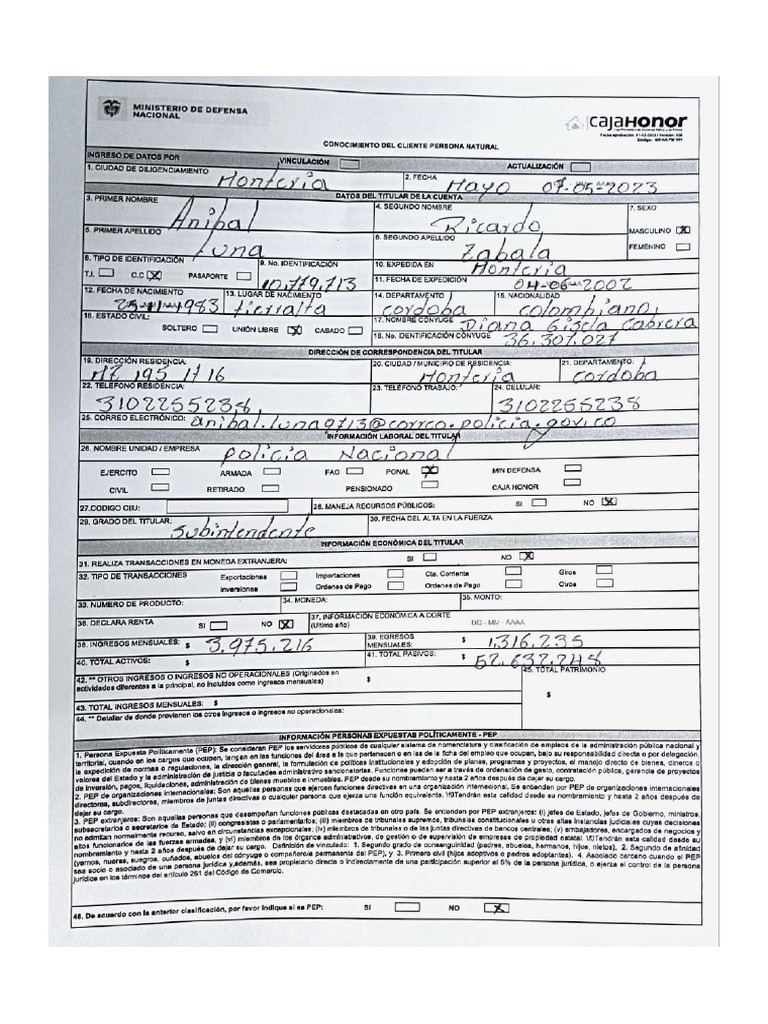 MINISTERIO DE DEFENSA
NACIONAL
CAJAHONOR
CONOCIMIENTO DEL CLIENTE PERSONA NATURAL
INGRESO DE DATOS POR VINCULACIÓN ACTUALIZACIÓN
1. CIUDAD DE DILIGENCIAMIENTO Montería 2. FECHA Mayo 07-05-2023
DATOS DEL TITULAR DE LA CUENTA
3. PRIMER NOMBRE Anibal 4. SEGUNDO NOMBRE Ricardo 7. SEXO
MASCULINO X
5. PRIMER APELLIDO Luna 6. SEGUNDO APELLIDO Zabala FEMENINO
8. TIPO DE IDENTIFICACIÓN 9. No. IDENTIFICACIÓN 10. EXPEDIDA EN Montería
T.I. C.C X PASAPORTE 10,779,713 11. FECHA DE EXPEDICIÓN 04-06-2002
12. FECHA DE NACIMIENTO 13. LUGAR DE NACIMIENTO 14. DEPARTAMENTO 15. NACIONALIDAD
25-11-1983 Tierralta Cordoba colombiano
16. ESTADO CIVIL: 17. NOMBRE CÓNYUGE Diana Gisela Cabrera
SOLTERO UNIÓN LIBRE X CASADO 18. No. IDENTIFICACIÓN CÓNYUGE 36,307,027
DIRECCIÓN DE CORRESPONDENCIA DEL TITULAR
19. DIRECCIÓN RESIDENCIA: 20. CIUDAD / MUNICIPIO DE RESIDENCIA: 21. DEPARTAMENTO:
MZ 195 lt 16 Montería Cordoba
22. TELÉFONO RESIDENCIA: 23. TELÉFONO TRABAJO: 24. CELULAR:
3102255238 3102255238
25. CORREO ELECTRÓNICO: anibal.luna9713@correo.policia.gov.co
INFORMACIÓN LABORAL DEL TITULAR
26. NOMBRE UNIDAD / EMPRESA Policia Nacional
EJERCITO ARMADA FAC PONAL X MIN DEFENSA
CIVIL RETIRADO PENSIONADO CAJA HONOR
27.CODIGO CIIU: 28. MANEJA RECURSOS PÚBLICOS: SI NO X
29. GRADO DEL TITULAR: Subintendente 30. FECHA DEL ALTA EN LA FUERZA
INFORMACIÓN ECONÓMICA DEL TITULAR
31. REALIZA TRANSACCIONES EN MONEDA EXTRANJERA: SI NO X
32. TIPO DE TRANSACCIONES Exportaciones Importaciones Cta. Corriente Giros
Inversiones Ordenes de Pago Ordenes de Pago Otros
33. NUMERO DE PRODUCTO: 34. MONEDA: 35. MONTO:
36. DECLARA RENTA SI NO X 37. INFORMACIÓN ECONÓMICA A CORTE
(Ultimo año) DD - MM - AAAA
38. INGRESOS MENSUALES: $ 3,975,216 39. EGRESOS
MENSUALES: $ 1,316,235
40. TOTAL ACTIVOS: $ 41. TOTAL PASIVOS: $ 52,632,248
42. ** OTROS INGRESOS O INGRESOS NO OPERACIONALES (Originados en
actividades diferentes a la principal, no incluidos como ingresos mensuales) $ 45. TOTAL PATRIMONIO
$
43. TOTAL INGRESOS MENSUALES: $
44. ** Detallar de donde provienen los otros ingresos o ingresos no operacionales:
INFORMACIÓN PERSONAS EXPUESTAS POLÍTICAMENTE - PEP
1. Persona Expuesta Políticamente (PEP): Se consideran PEP los servidores públicos de cualquier sistema de nomenclatura y clasificación de empleos de la administración pública nacional y
territorial, cuando en los cargos que ocupan, tengan en las funciones del área a la que pertenecen o en las de la ficha del empleo que ocupan, bajo su responsabilidad directa o por delegación,
la expedición de normas o regulaciones, la dirección general, la formulación de políticas institucionales y adopción de planes, programas y proyectos, el manejo directo de bienes, dineros o
valores del Estado y la administración de justicia o facultades administrativo sancionatorias. Funciones pueden ser a través de ordenación de gasto, contratación pública, gerencia de proyectos
de inversión, pagos, liquidaciones, administración de bienes muebles e inmuebles. PEP desde su nombramiento y hasta 2 años después de dejar su cargo.
2. PEP de organizaciones internacionales: Son aquellas personas que ejercen funciones directivas en una organización internacional. Se entienden por PEP de organizaciones internacionales
directores, subdirectores, miembros de juntas directivas o cualquier persona que ejerza una función equivalente. Tendrán esta calidad desde su nombramiento y hasta 2 años después de
dejar su cargo.
3. PEP extranjeros: Son aquellas personas que desempeñan funciones públicas destacadas en otro país. Se entienden por PEP extranjeros: (i) jefes de Estado, jefes de Gobierno, ministros,
subsecretarios o secretarios de Estado; (ii) congresistas o parlamentarios; (iii) miembros de tribunales supremos, tribunales constitucionales u otras altas instancias judiciales cuyas decisiones
no admitan normalmente recurso, salvo en circunstancias excepcionales; (iv) miembros de tribunales o de las juntas directivas de bancos centrales; (v) embajadores, encargados de negocios y
altos funcionarios de las fuerzas armadas, y (vi) miembros de los órganos administrativos, de gestión o de supervisión de empresas de propiedad estatal. Tendrán esta calidad desde su
nombramiento y hasta 2 años después de dejar su cargo. Definición de vinculado: 1. Segundo grado de consanguinidad (padres, abuelos, hermanos, hijos, nietos), 2. Segundo de afinidad
(yernos, nueras, suegros, cuñados, abuelos del cónyuge o compañero/a permanente del PEP), y 3. Primero civil (hijos adoptivos o padres adoptantes). 4. Asociado cercano cuando el PEP
sea socio o asociado de una persona jurídica y,además, sea propietario directo o indirectamente de una participación superior al 5% de la persona jurídica, o ejerza el control de la persona
jurídica en los términos del artículo 261 del Código de Comercio.
46. De acuerdo con la anterior clasificación, por favor indique si es PEP: SI NO X